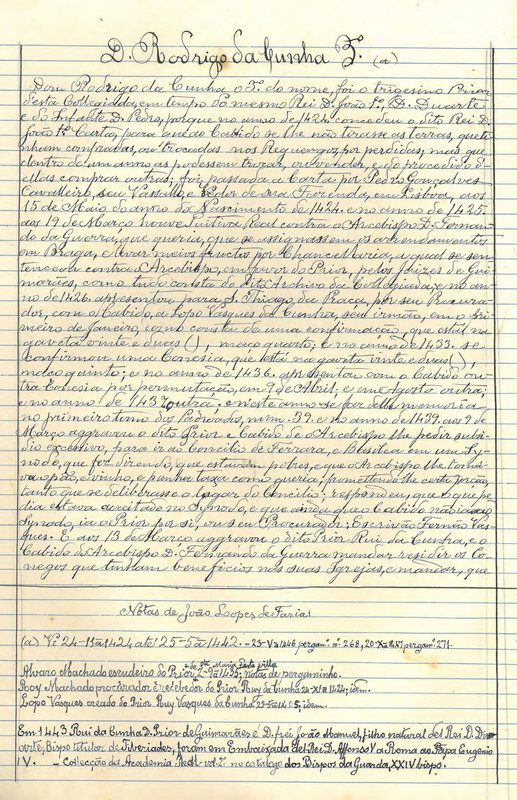 D. Rodrigo da Cunha 3º. (a)
Dom Rodrigo da Cunha o 3º. do nome, foi o trigesimo Prior
desta Collegiada, em tempo do mesmo Rei D. João 1º., D. Duarte
e do Infante D. Pedro, porque no anno de 1424 concedeu o dito Rei D.
João 1º. Carta, para que ao Cabido se lhe não tirasse as terras, que ti-
nham compradas, ou trocadas nos Reguengos, por perdidas, mas que
dentro de um anno as podessem trocar, ou vender, e do procedido d'
ellas comprar outras; foi passada a Carta por Pedro Gonçalves
Cavalleiro, seu Vassallo e Védor de sua Fazenda, em Lisboa, aos
15 de Maio do anno do Nascimento de 1424. e no anno de 1425.
aos 19 de Março houve Tuitiva Real contra o Arcebispo D. Fernan-
do da Guerra, que queria, que se assignassem os arrendamentos
em Braga, e levar meios fructos por Chancellaria, a qual se sen-
tenceou contra o Arcebispo, em favor do Prior, pelos Juizes de Gui-
marães, como tudo consta do Archivo da Collegiada; e no an-
no de 1426. apresentou para S. Thiago, da Praça, por seu Procura-
dor, com o Cabido, a Lopo Vasques da Cunha, seu irmão, em o pri-
meiro de Janeiro, como consta de uma confirmação, que está na
gaveta vinte e duas ( ), maço quarto; e no anno de 1433. se
confirmou uma Conesia, que está na gaveta vinte e duas ( ),
maço quinto; e no anno de 1436. apresentou com o Cabido ou-
tra Conesia por permutação, em 9 de Abril, e em Agosto outra;
e no anno de 1437 outra. e n'este anno se faz d'elle memoria
no primeiro tomo dos Padroados, num. 39. e no anno de 1439. aos 9 de
Março aggravou o dito Prior e Cabido de o Arcebispo lhe pedir subsi-
dio excessivo, para ir ao Concilio de Ferrara, e Basilea em um Sy-
nodo, que foz dizendo, que estavam pobres, e que o Arcebispo lhe toma-
va o pão, e vinho, e punha taxa como queria, promettendo lhe certa porção,
tanto que se deliberasse o logar do Concilio; respondeu, que o que pe-
dia estava acceitado no Synodo, e que ainda que o Cabido não ia ao
Synodo, ia o Prior por si, ou seu Procurador; Escrivão Fernão Vas-
ques. E aos 13 de Março aggravou o dito Prior Rui da Cunha, e o
Cabido do Arcebispo D. Fernando da Guerra mandar residir os Co-
negos que tinham beneficios nas suas Igrejas, e mandar, que
Notas de João Lopes de Faria:
(a) Vi 24-11-1424 até 25-5-1442. - 23-V-1446 pergam. nº 268, 20-X-1447, pergam. 271.
de Stª. Maria desta villa
Alvaro Machado escudeiro do Prior, 2-9-1435; notas de pergaminho.
Rooy Machado procurador e recebedor do Prior Ruy da Cunha 24-XI-1424; idem.
Lopo Vasques creado do Prior Ruy Vasques da Cunha 1425; idem.
Em 1443 Rui da Cunha D. Prior de Guimarães e D. frei João Manuel, filho natural del Rei D. Du-
arte, Bispo titular de Tiberiades, foram em Embaixada del Rei D. Affonso V a Roma ao Papa Eugenio
IV. - Collecção da Academia Real - vol. 2º no catalogo dos Bispos da Guarda, XXIV bispo.